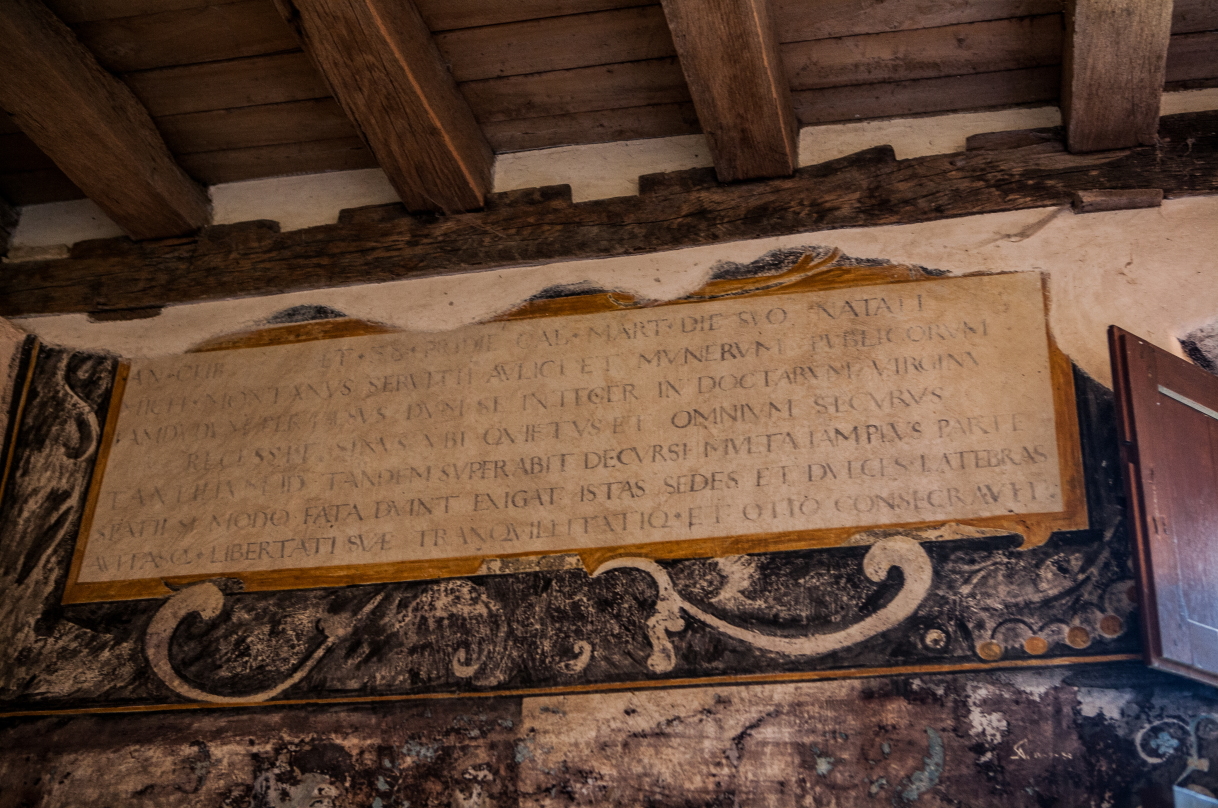 AN · CHR ET · 38 · PRIDIE CAL · MART · DIE SVO NATALI
MICH · MONTANVS SERVITII AVLICI ET MVNERVM PVBLICORVM
IAMDVDVM PERTÆSVS DVM SE INTEGER IN DOCTARVM VIRGINV
RECESSIT SINVS VBI QVIETVS ET OMNIVM SECVRVS
ID TANDEM SVPERABIT DECVRSI MVLTA IAM PLVS PARTE
SPATII SI MODO FATA DVINT EXIGAT ISTAS SEDES ET DVLCES LATEBRAS
AVITASQ · LIBERTATI SVÆ TRANQVILLITATIQ · ET OTIO CONSECRAVIT